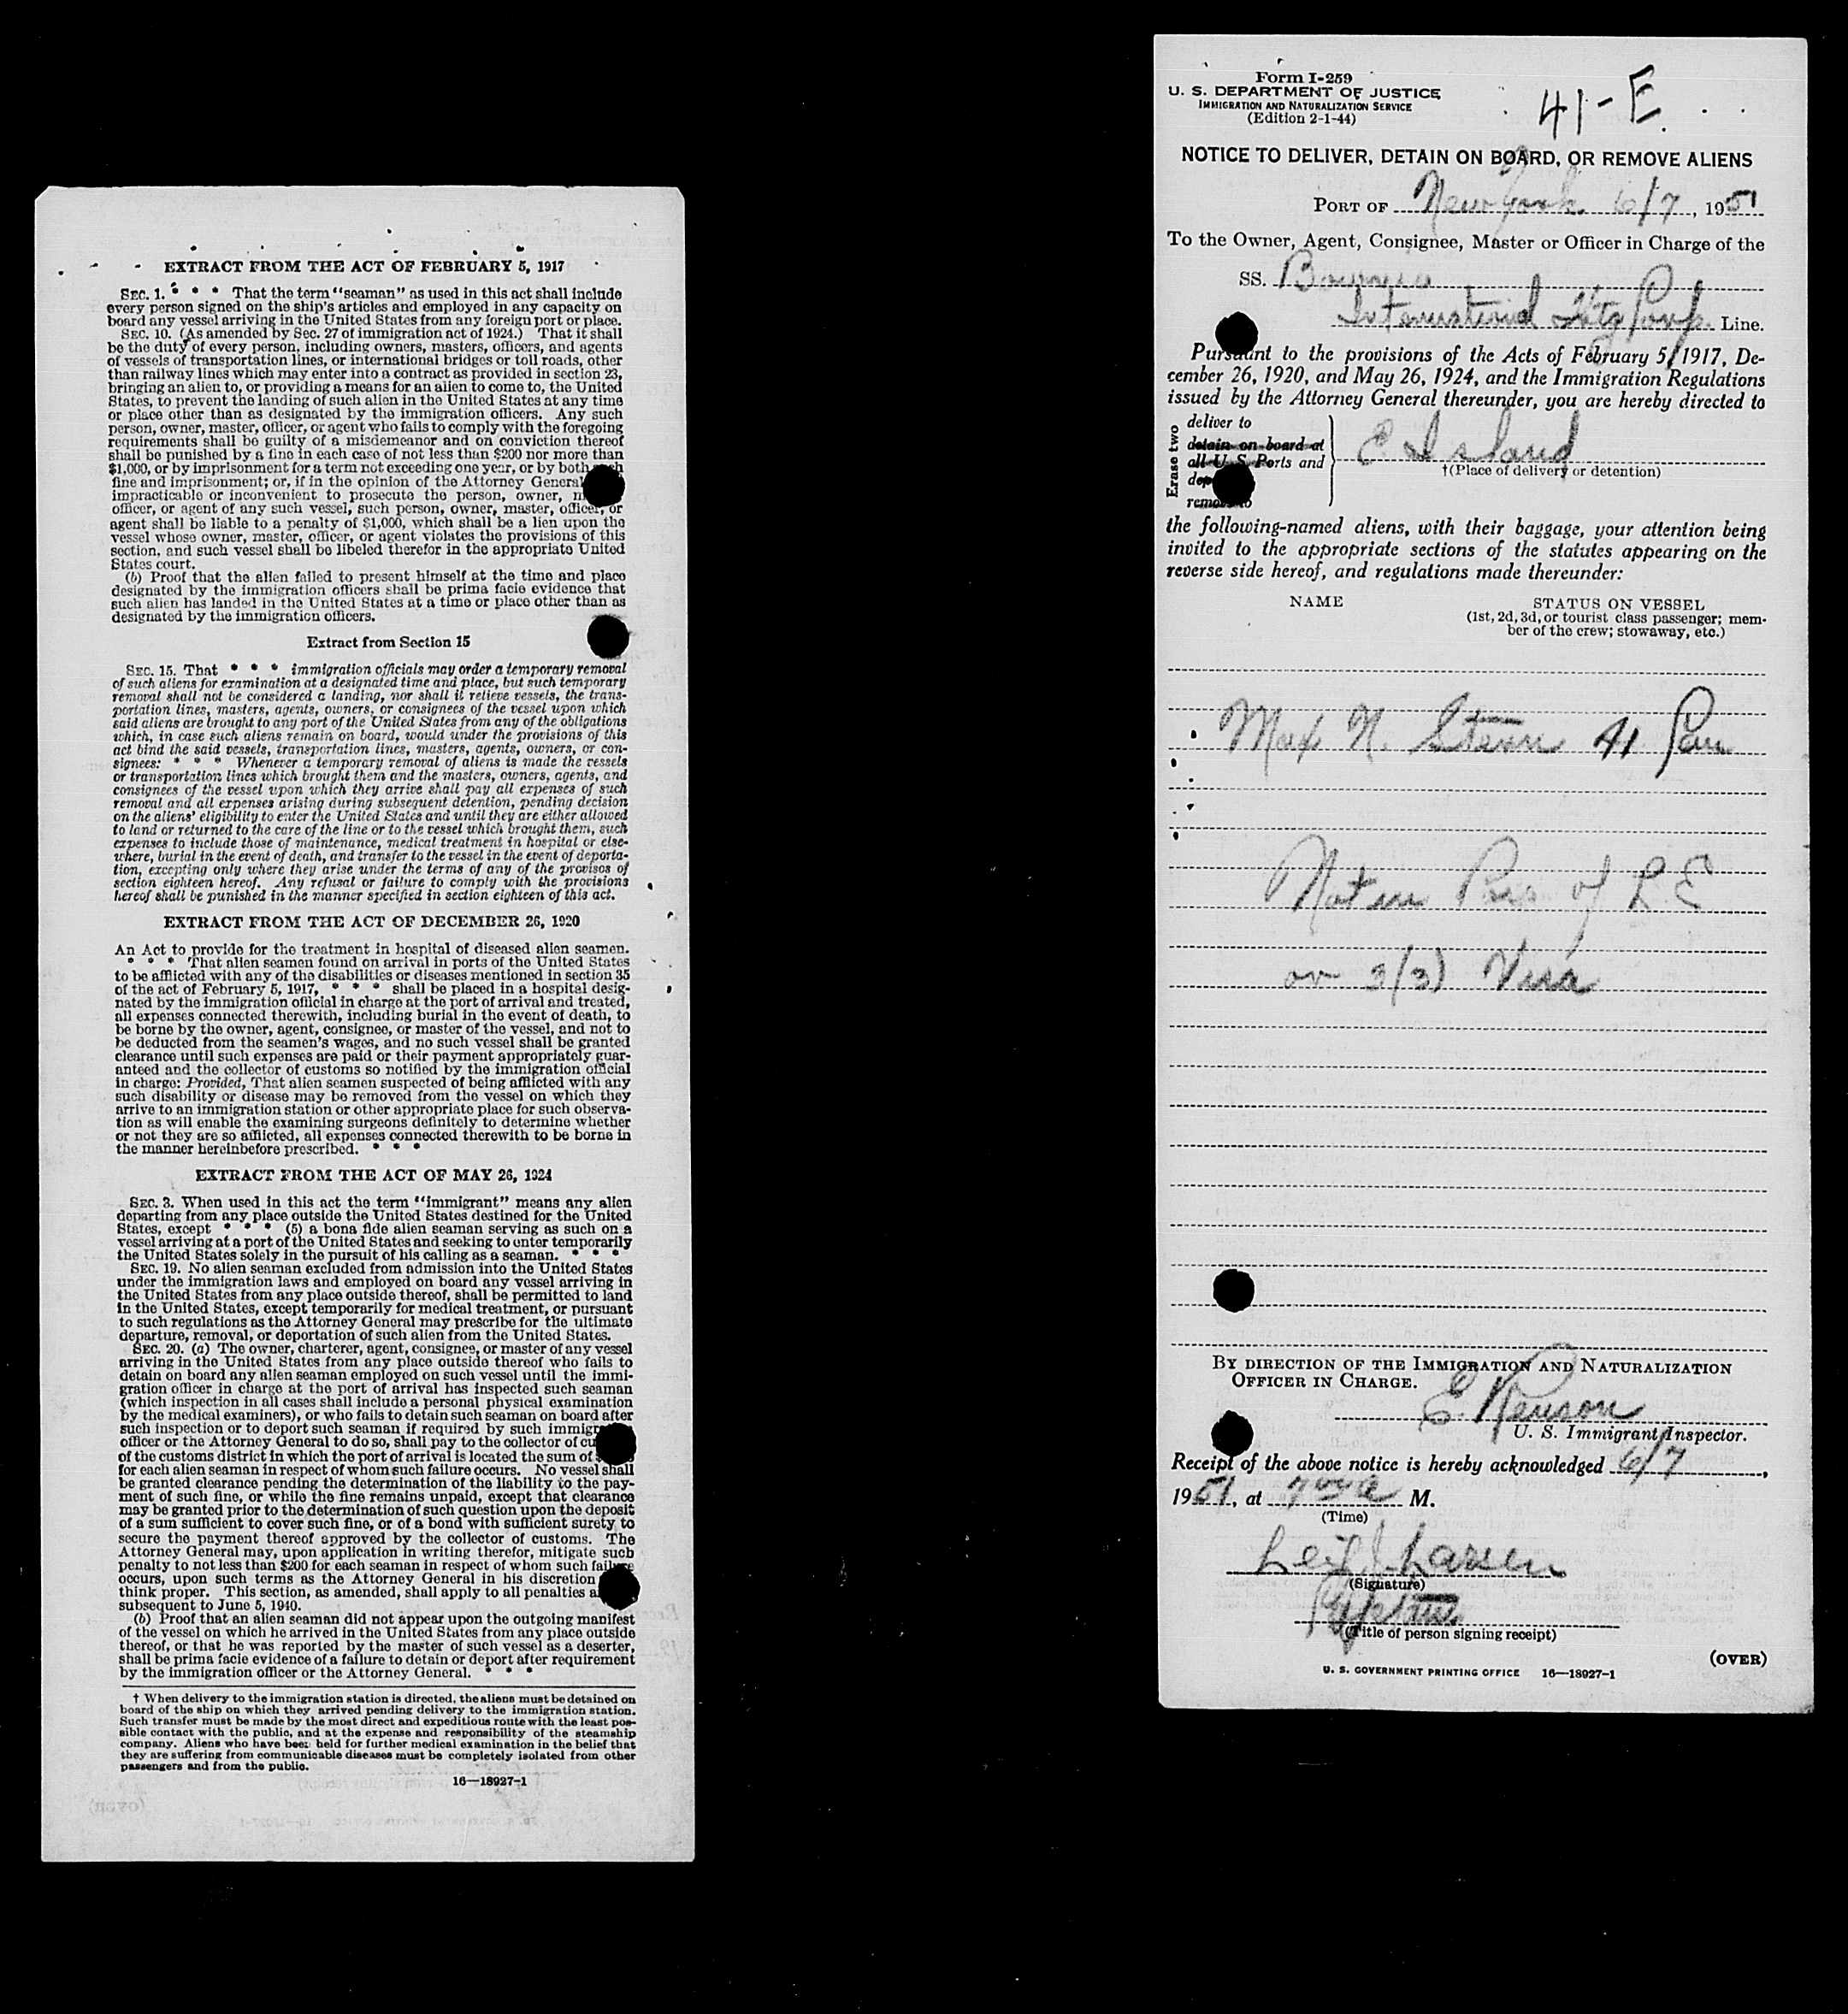 EXTRACT FROM THE ACT OF FEBRUARY 5, 1917
SEC. 1. * * * That the term "seaman" as used in this act shall include
every person signed on the ship's articles and employed in any capacity on
board any vessel arriving in the United States from any foreign port or place.
SEC. 10. (As amended by Sec. 27 of immigration act of 1924.) That it shall
be the duty of every person, including owners, masters, officers, and agents
of vessels of transportation lines, or international bridges or toll roads, other
than railway lines which may enter into a contract as provided in section 23,
bringing an alien to, or providing a means for an alien to come to, the United
States, to prevent the landing of such alien in the United States at any time
or place other than as designated by the immigration officers. Any such
person, owner, master, officer, or agent who fails to comply with the foregoing
requirements shall be guilty of a misdemeanor and on conviction thereof
shall be punished by a fine in each case of not less than $200 nor more than
$1,000, or by imprisonment for a term not exceeding one year, or by both such
fine and imprisonment; or, if in the opinion of the Attorney General
impracticable or inconvenient to prosecute the person, owner,
officer, or agent of any such vessel, such person, owner, master, officer, or
agent shall be liable to a penalty of $1,000, which shall be a lien upon the
vessel whose owner, master, officer, or agent violates the provisions of this
section, and such vessel shall be libeled therefor in the appropriate United
States court.
(b) Proof that the alien failed to present himself at the time and place
designated by the immigration officers shall be prima facie evidence that
such alien has landed in the United States at a time or place other than as
designated by the immigration officers.
Extract from Section 15
SEC. 15. That * * * immigration officials may order a temporary removal
of such aliens for examination at a designated time and place, but such temporary
removal shall not be considered a landing, nor shall it relieve vessels, the trans-
portation lines, masters, agents, owners, or consignees of the vessel upon which
said aliens are brought to any port of the United States from any of the obligations
which, in case such aliens remain on board, would under the provisions of this
act bind the said vessels, transportation lines, masters, agents, owners, or con-
signees: * * * Whenever a temporary removal of aliens is made the vessels
or transportation lines which brought them and the masters, owners, agents, and
consignees of the vessel upon which they arrive shall pay all expenses of such
removal and all expenses arising during subsequent detention, pending decision
on the aliens' eligibility to enter the United States and until they are either allowed
to land or returned to the care of the line or to the vessel which brought them, such
expenses to include those of maintenance, medical treatment in hospital or else-
where, burial in the event of death, and transfer to the vessel in the event of deporta-
tion, excepting only where they arise under the terms of any of the provisos of
section eighteen hereof. Any refusal or failure to comply with the provisions
hereof shall be punished in the manner specified in section eighteen of this act.
EXTRACT FROM THE ACT OF DECEMBER 26, 1920
An Act to provide for the treatment in hospital of diseased alien seamen.
* * * That alien seamen found on arrival in ports of the United States
to be afflicted with any of the disabilities or diseases mentioned in section 35
of the act of February 5, 1917, * * * shall be placed in a hospital desig-
nated by the immigration official in charge at the port of arrival and treated,
all expenses connected therewith, including burial in the event of death, to
be borne by the owner, agent, consignee, or master of the vessel, and not to
be deducted from the seamen's wages, and no such vessel shall be granted
clearance until such expenses are paid or their payment appropriately guar-
anteed and the collector of customs so notified by the immigration official
in charge: Provided, That alien seamen suspected of being afflicted with any
such disability or disease may be removed from the vessel on which they
arrive to an immigration station or other appropriate place for such observa-
tion as will enable the examining surgeons definitely to determine whether
or not they are so afflicted, all expenses connected therewith to be borne in
the manner hereinbefore prescribed. * * *
EXTRACT FROM THE ACT OF MAY 26, 1924
SEC. 3. When used in this act the term "immigrant" means any alien
departing from any place outside the United States destined for the United
States, except * * * (5) a bona fide alien seaman serving as such on a
vessel arriving at a port of the United States and seeking to enter temporarily
the United States solely in the pursuit of his calling as a seaman. * * *
SEC. 19. No alien seaman excluded from admission into the United States
under the immigration laws and employed on board any vessel arriving in
the United States from any place outside thereof, shall be permitted to land
in the United States, except temporarily for medical treatment, or pursuant
to such regulations as the Attorney General may prescribe for the ultimate
departure, removal, or deportation of such alien from the United States.
SEC. 20. (a) The owner, charterer, agent, consignee, or master of any vessel
arriving in the United States from any place outside thereof who fails to
detain on board any alien seaman employed on such vessel until the immi-
gration officer in charge at the port of arrival has inspected such seaman
(which inspection in all cases shall include a personal physical examination
by the medical examiners), or who fails to detain such seaman on board after
such inspection or to deport such seaman if required by such
officer or the Attorney General to do so, shall pay to the collector of
of the customs district in which the port of arrival is located the sum of
for each alien seaman in respect of whom such failure occurs. No vessel shall
be granted clearance pending the determination of the liability to the pay-
ment of such fine, or while the fine remains unpaid, except that clearance
may be granted prior to the determination of such question upon the deposit
of a sum sufficient to cover such fine, or of a bond with sufficient surety to
secure the payment thereof approved by the collector of customs. The
Attorney General may, upon application in writing therefor, mitigate such
penalty to not less than $200 for each seaman in respect of whom such failure
occurs, upon such terms as the Attorney General in his discretion
think proper. This section, as amended, shall apply to all penalties
subsequent to June 5, 1940.
(b) Proof that an alien seaman did not appear upon the outgoing manifest
of the vessel on which he arrived in the United States from any place outside
thereof, or that he was reported by the master of such vessel as a deserter,
shall be prima facie evidence of a failure to detain or deport after requirement
by the immigration officer or the Attorney General. * * *
† When delivery to the immigration station is directed, the aliens must be detained on
board of the ship on which they arrived pending delivery to the immigration station.
Such transfer must be made by the most direct and expeditious route with the least pos-
sible contact with the public, and at the expense and responsibility of the steamship
company. Aliens who have been held for further medical examination in the belief that
they are suffering from communicable diseases must be completely isolated from other
passengers and from the public.
16—18927-1
Form I-259
U. S. DEPARTMENT OF JUSTICE
IMMIGRATION AND NATURALIZATION SERVICE
(Edition 2-1-44)
41-E
NOTICE TO DELIVER, DETAIN ON BOARD, OR REMOVE ALIENS
PORT OF New York 6/7, 1951
To the Owner, Agent, Consignee, Master or Officer in Charge of the
SS.
Line.
Pursuant to the provisions of the Acts of February 5, 1917, De-
cember 26, 1920, and May 26, 1924, and the Immigration Regulations
issued by the Attorney General thereunder, you are hereby directed to
Erase two
deliver to
detain on board at
all U. S. Ports and
remove to
E Island
†(Place of delivery or detention)
the following-named aliens, with their baggage, your attention being
invited to the appropriate sections of the statutes appearing on the
reverse side hereof, and regulations made thereunder:
NAME
STATUS ON VESSEL
(1st, 2d, 3d, or tourist class passenger; mem-
ber of the crew; stowaway, etc.)
Max N. 41
Not in of
or 3(3) Visa
BY DIRECTION OF THE IMMIGRATION AND NATURALIZATION
OFFICER IN CHARGE.
E.
U. S. Immigrant Inspector.
Receipt of the above notice is hereby acknowledged 6/7,
1951, at M.
(Time)
Leif J. Larsen
(Signature)
(Title of person signing receipt)
(OVER)
U. S. GOVERNMENT PRINTING OFFICE 16—18927-1